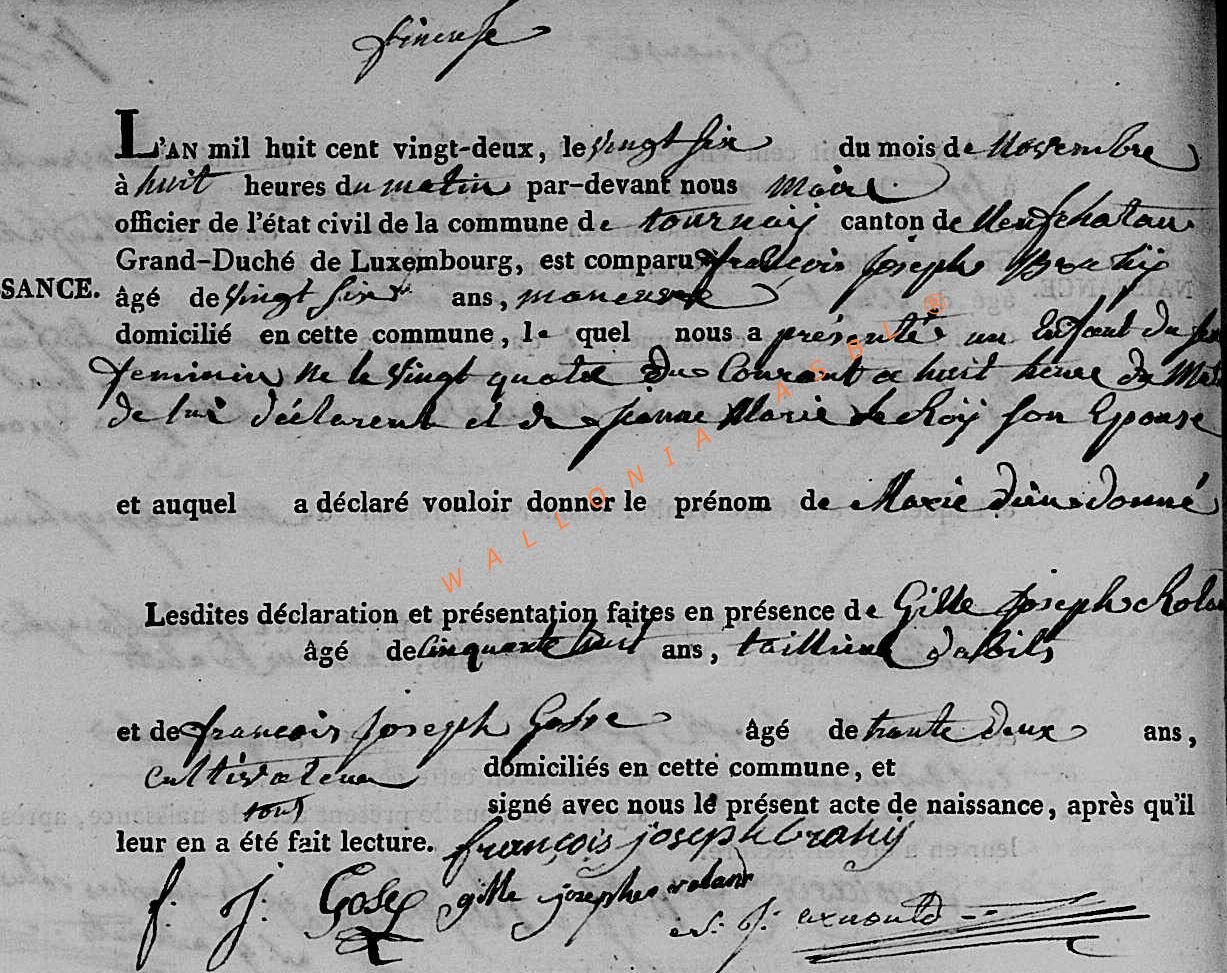 fineuse
L'AN mil huit cent vingt-deux, le vingt six du mois de Novembre
à huit heures du matin par-devant nous Maire
officier de l'état civil de la commune de tournaij canton de Neufchatau
Grand-Duché de Luxembourg, est comparu francois joseph Brahij
SANCE. âgé de vingt six ans, maneuvre
domicilié en cette commune, le quel nous a présenté un Enfant du
feminin Ne le vingt quatre Du Courant a huit heure du
de lui déclarent et de jeanne Marie le Roij son Epouse
et auquel a déclaré vouloir donner le prénom de Marie dieudonné
Lesdites déclaration et présentation faites en présence de Gille joseph
âgé de Cinquante huit ans, tailleur dabits
et de francois joseph Gosse âgé de trante deux ans,
Cultivateur domiciliés en cette commune, et
tous signé avec nous le présent acte de naissance, après qu'il
leur en a été fait lecture. françois joseph brahij
f: J: Gosse gille josephe roland
J: arnould
WALLONIA ASBL ®